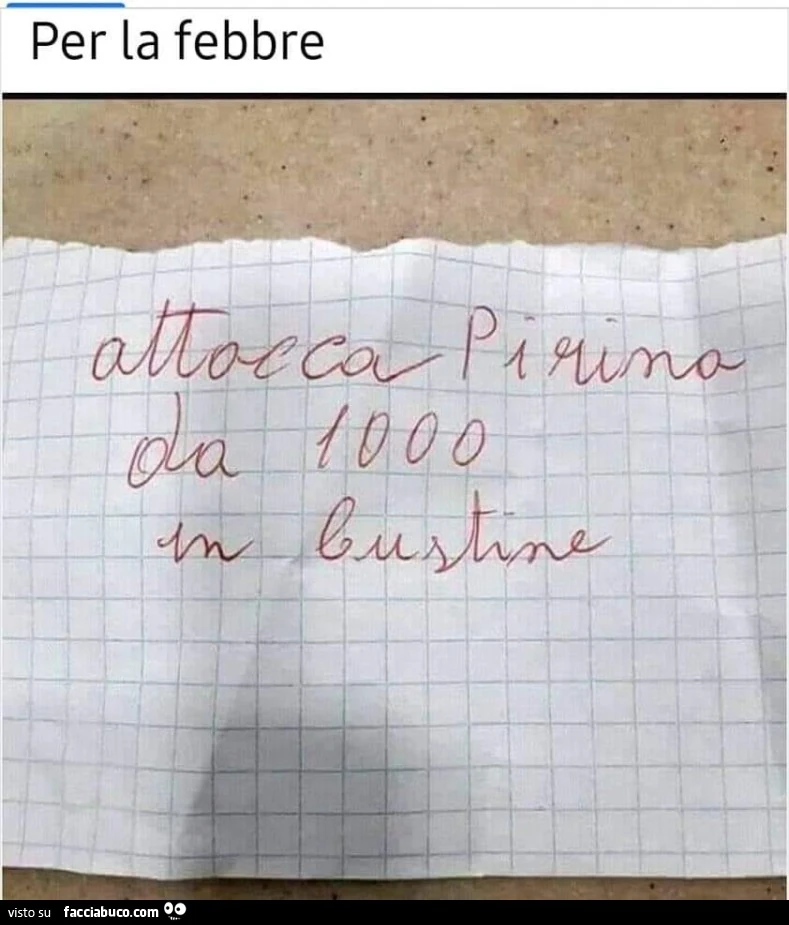 Per la febbre
attacca Pirina
da 1000
in bustine
visto su facciabuco.com